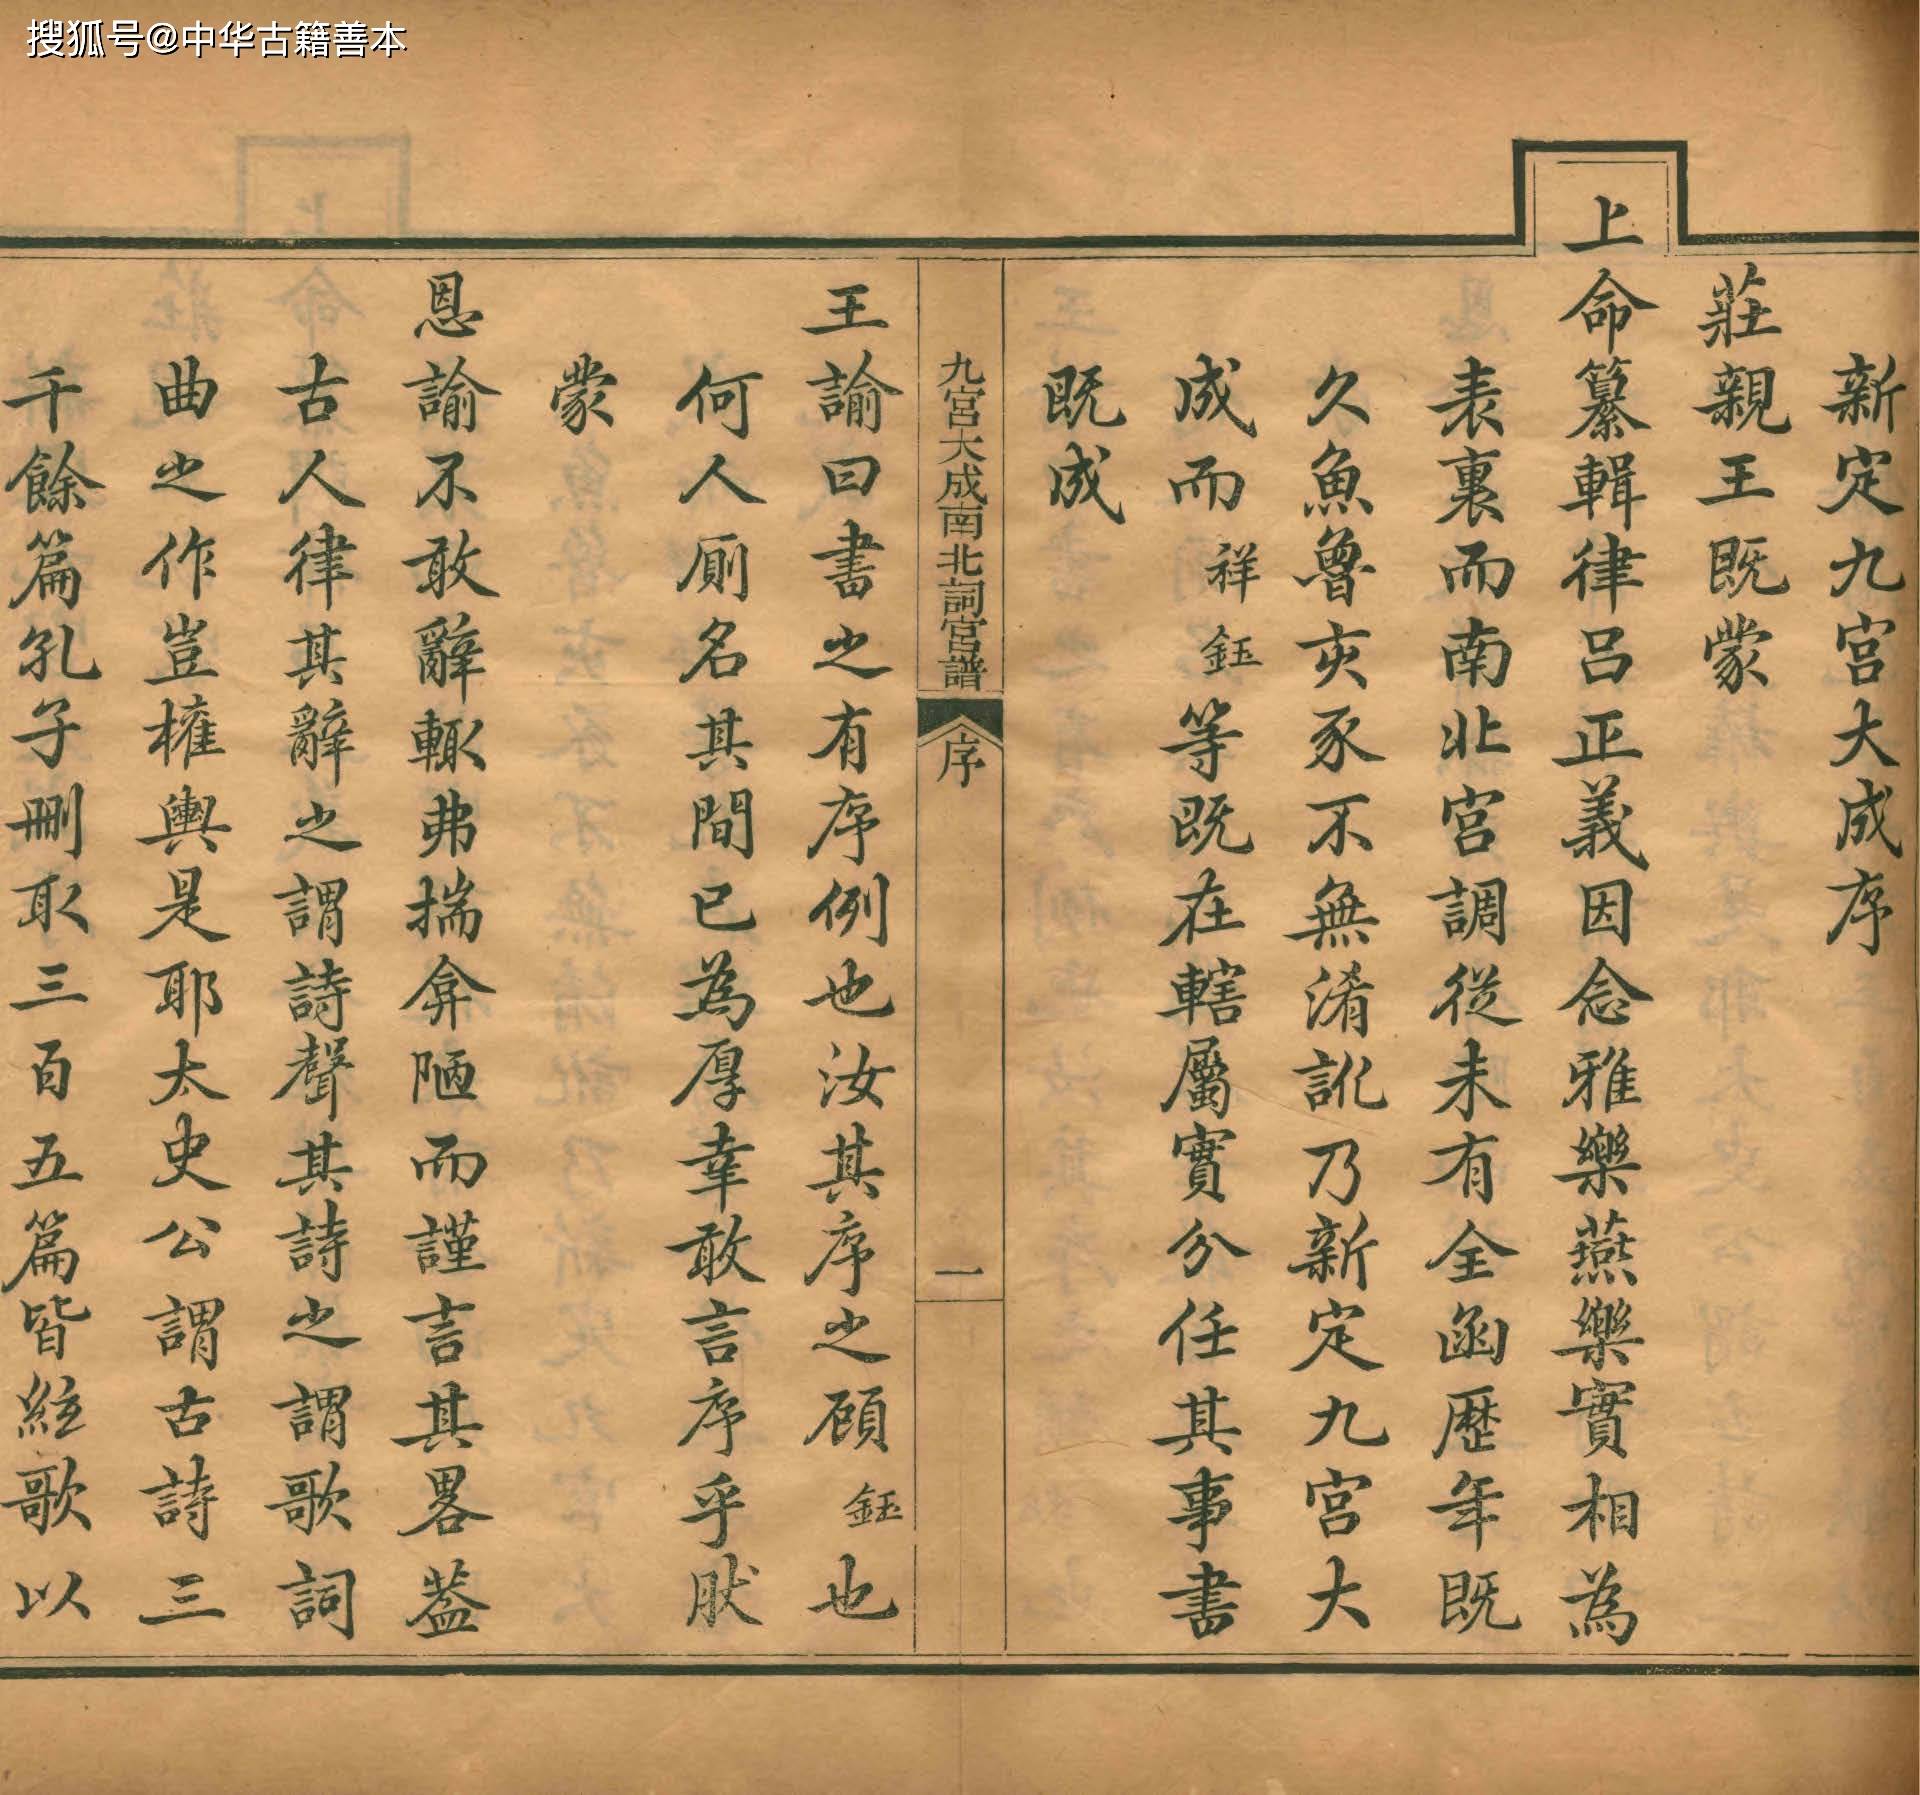 搜狐号@中华古籍善本
新定九宮大成序
莊親王既蒙
上命纂輯律呂正義因念雅樂燕樂實相為
表裏而南北宮調從未有全函歷年既
久魚魯亥豕不無淆訛乃新定九宮大
成而祥鈺等既在轄屬實分任其事書
既成
九宮大成南北詞宮譜
序
一
王諭曰書之有序例也汝其序之顧鈺也
何人厠名其間已為厚幸敢言序乎肰
蒙
恩諭不敢辭輙弗揣弇陋而謹言其畧葢
古人律其辭之謂詩聲其詩之謂歌詞
曲之作豈權輿是耶太史公謂古詩三
千餘篇孔子刪取三百五篇皆絃歌以